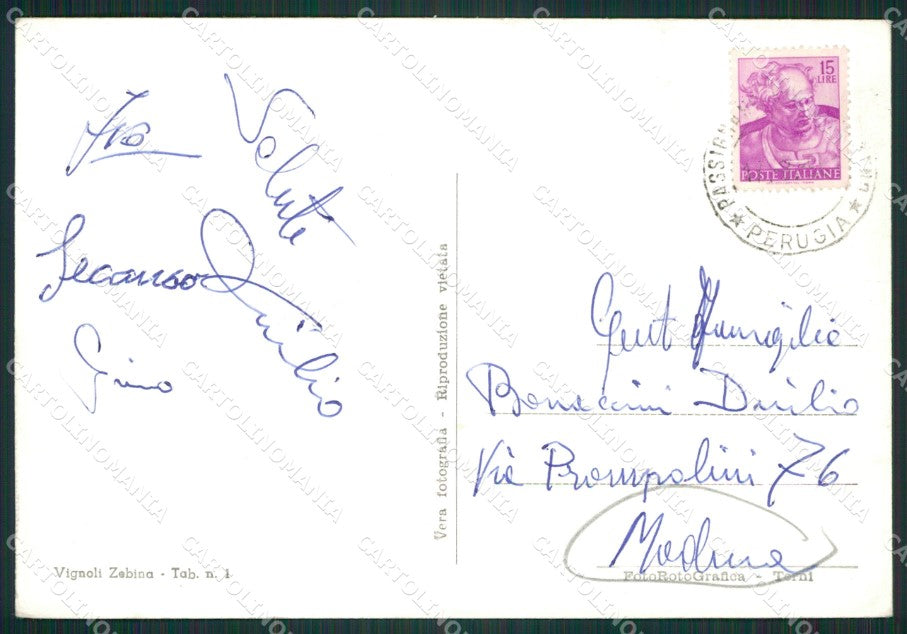 Saluti
Iva
Secondo Duilio
Gino
Vignoli Zebina - Tab. n. 1
Vera fotografia - Riproduzione vietata
15
LIRE
POSTE ITALIANE
PASSIGNANO
★ PERUGIA ★
Gent Famiglia
Bonaccini Duilio
Via Prampolini 76
Modena
FotoRotoGrafica - Terni
CARTOLINOMANIA